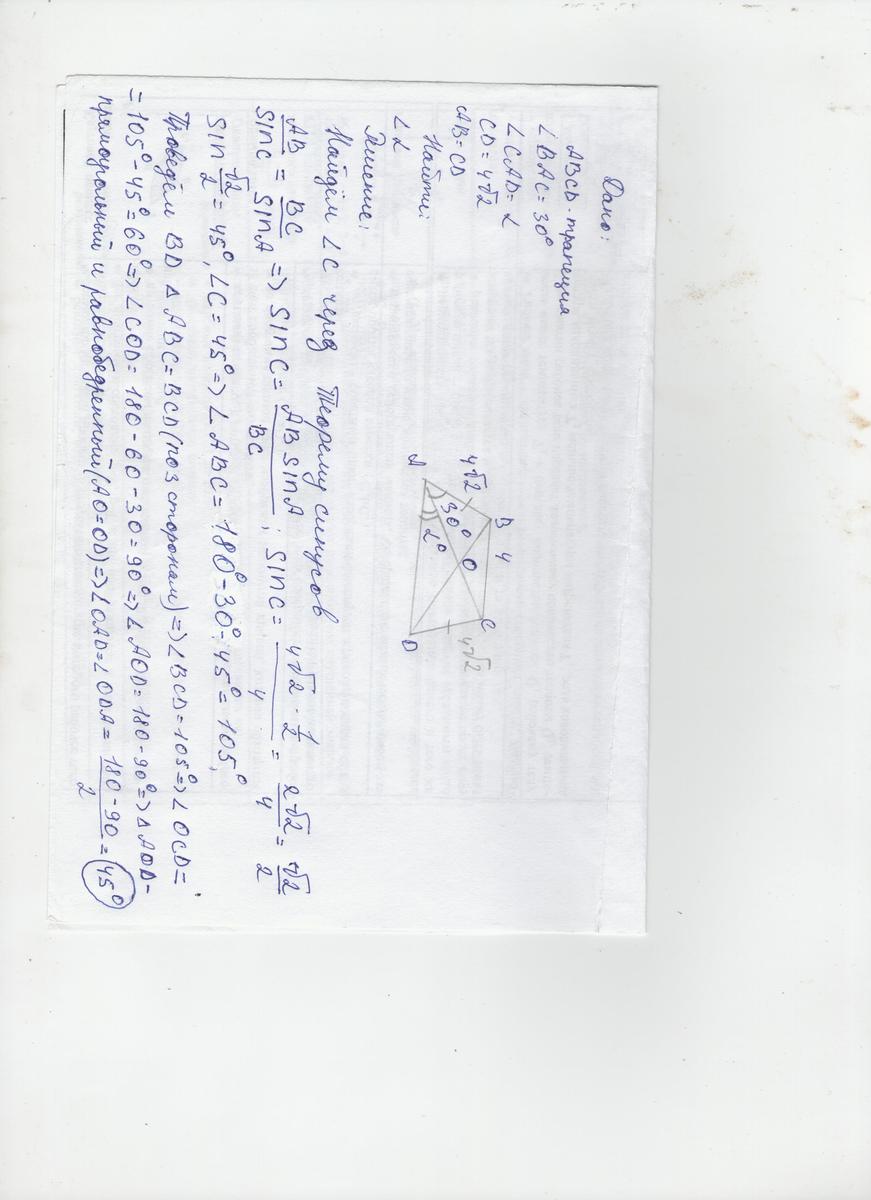 Дано:
ABCD-трапеция
∠BAC=30°
∠CAD=∠
CD=4√2
AB=CD
Найти:
∠∠
Решение:
A
4√2
B
4
30°
∠°
O
C
4√2
D
Найдём ∠C через Теорему синусов
AB/SinC = BC/SinA => SinC = ABSinA/BC ; SinC = (4√2·1/2)/4 = 2√2/4 = √2/2
Sin √2/2 = 45°, ∠C=45° => ∠ABC=180°-30°-45°=105°,
Проведём BD △ABC=BCD(по 3 сторонам)=>∠BCD=105°=>∠OCD=
=105°-45°=60°=>∠COD=180-60-30=90°=>∠AOD=180-90°=>△AOD-
прямоугольный и равнобедренный(AO=OD)=>∠OAD=∠ODA= (180-90)/2 = 45°